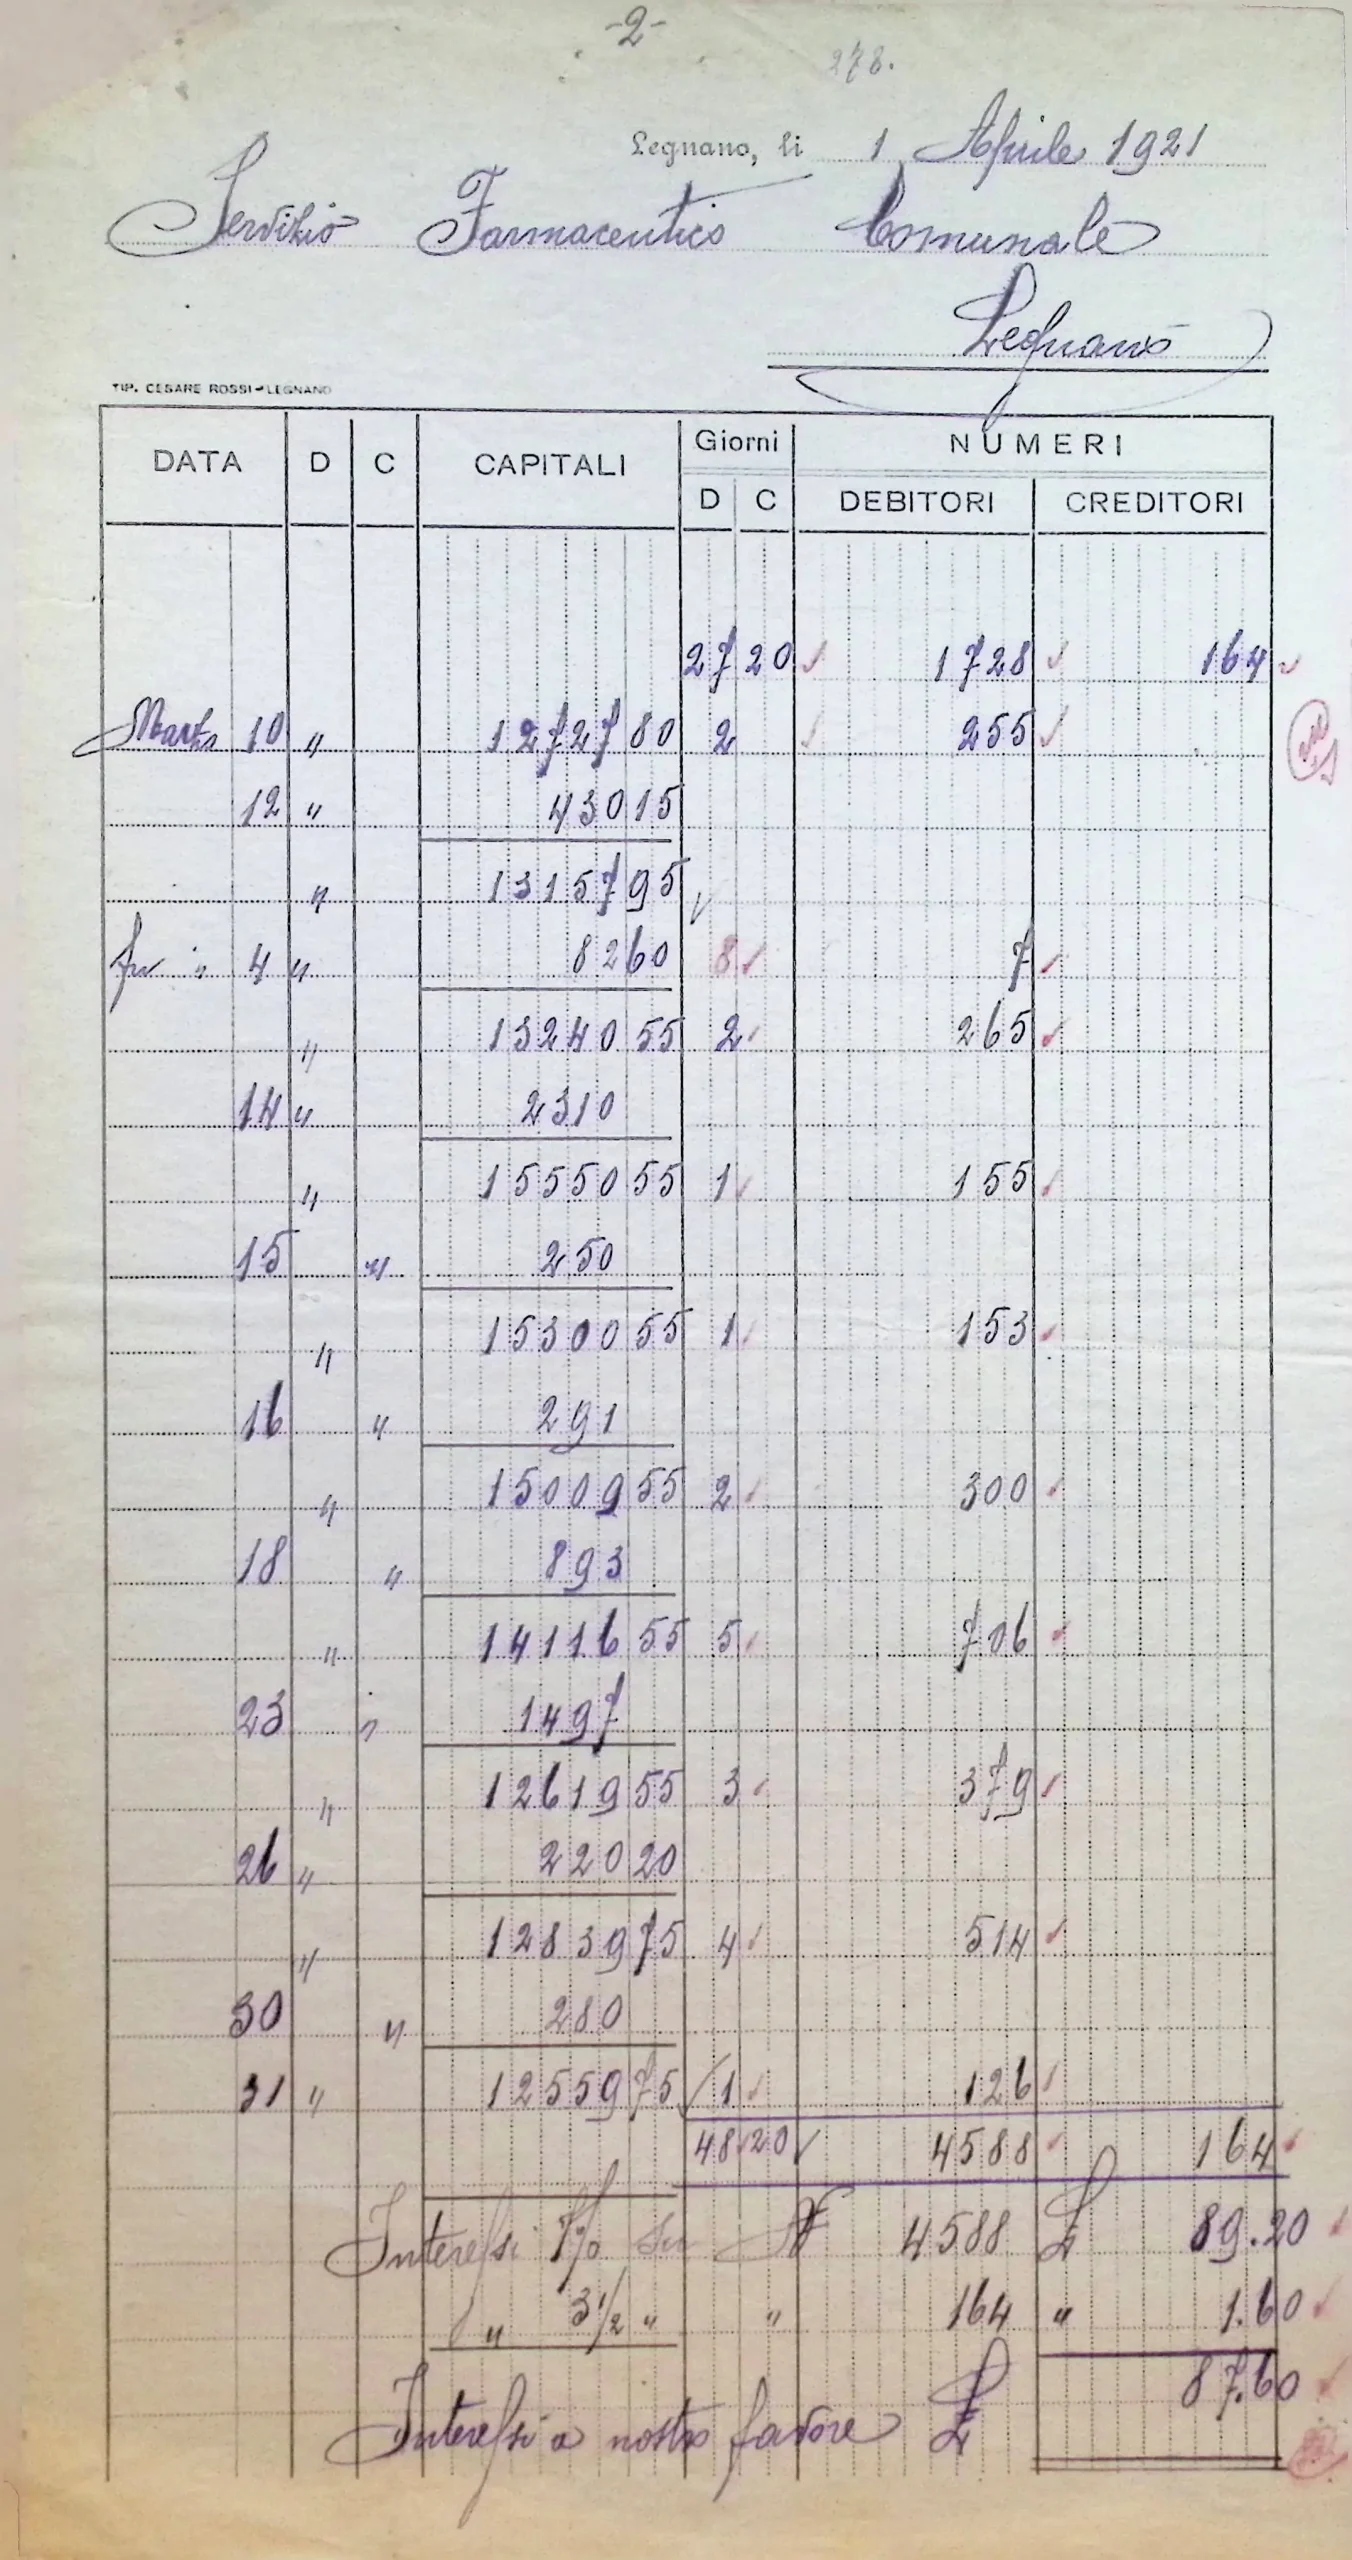 -2-
278.
Legnano, li 1 Aprile 1921
Servizio Farmaceutico Comunale
Legnano
TIP. CESARE ROSSI - LEGNANO
DATA D C CAPITALI Giorni NUMERI
D C DEBITORI CREDITORI
27 20 1728 164
Marzo 10 " 12727 80 2 255
12 " 430 15
" 13157 95
4 " 82 60 8 7
" 13240 55 2 265
14 " 2310
" 15550 55 1 155
15 " 250
" 15300 55 1 153
16 " 291
" 15009 55 2 300
18 " 893
" 14116 55 5 706
23 " 1497
" 12619 55 3 379
26 " 220 20
" 12839 75 4 514
30 " 280
31 " 12559 75 1 126
48 20 4588 164
Interessi 7% su N 4588 £ 89.20
" 3 1/2 " " 164 " 1.60
87.60
Interessi a nostro favore £